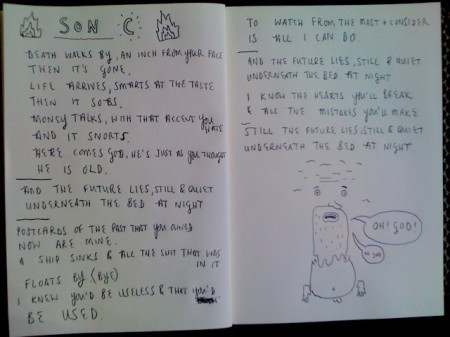 SON
DEATH WALKS BY, AN INCH FROM YOUR FACE
THEN IT'S GONE.
LIFE ARRIVES, SMARTS AT THE TASTE
THEN IT SOBS.
MONEY TALKS, WITH THAT ACCENT YOU HATE
AND IT SNORTS.
HERE COMES GOD, HE'S JUST AS YOU THOUGHT
HE IS OLD.
AND THE FUTURE LIES, STILL & QUIET
UNDERNEATH THE BED AT NIGHT
POSTCARDS OF THE PAST THAT YOU OWNED
NOW ARE MINE.
A SHIP SINKS & ALL THE SUIT THAT WAS IN IT
FLOATS BY (BYE)
I KNEW YOU'D BE USELESS & THAT YOU'D
BE USED.
TO WATCH FROM THE MAST + CONSIDER
IS ALL I CAN DO.
AND THE FUTURE LIES, STILL & QUIET
UNDERNEATH THE BED AT NIGHT
I KNOW THE HEARTS YOU'LL BREAK
& ALL THE MISTAKES YOU'LL MAKE
STILL THE FUTURE LIES, STILL & QUIET
UNDERNEATH THE BED AT NIGHT
OH! GOD!